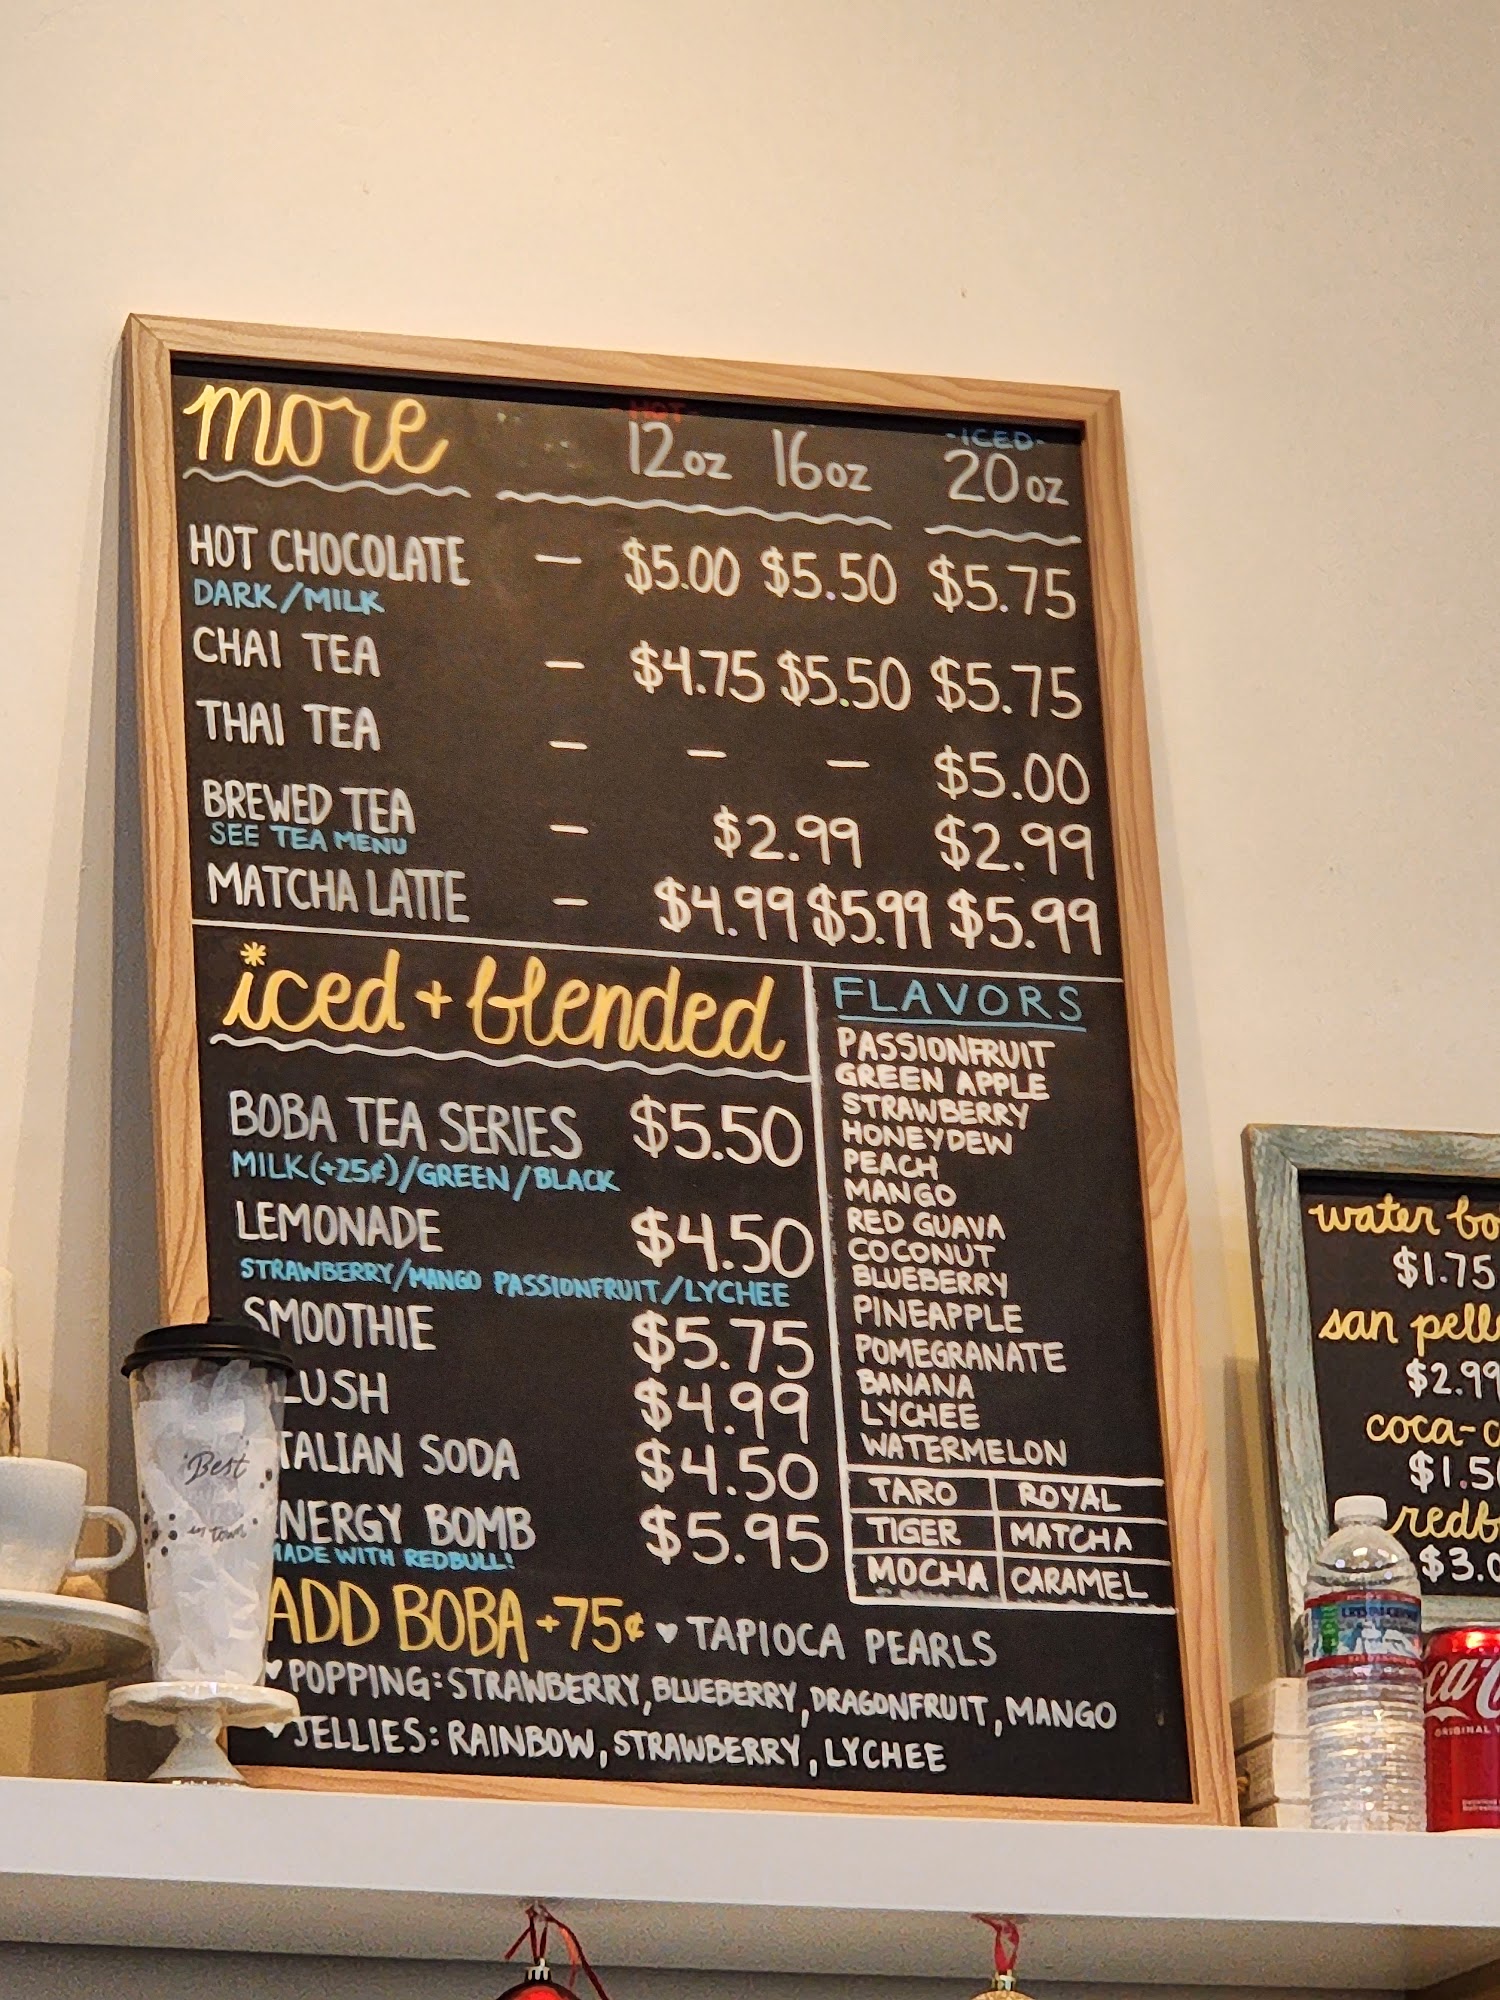 more
-HOT-
12oz 16oz
-ICED-
20oz
HOT CHOCOLATE — $5.00 $5.50 $5.75
DARK/MILK
CHAI TEA — $4.75 $5.50 $5.75
THAI TEA — — — $5.00
BREWED TEA — $2.99 $2.99
SEE TEA MENU
MATCHA LATTE — $4.99 $5.99 $5.99
*iced + blended
BOBA TEA SERIES $5.50
MILK(+25¢)/GREEN/BLACK
LEMONADE $4.50
STRAWBERRY/MANGO PASSIONFRUIT/LYCHEE
SMOOTHIE $5.75
LUSH $4.99
TALIAN SODA $4.50
NERGY BOMB $5.95
MADE WITH REDBULL!
FLAVORS
PASSIONFRUIT
GREEN APPLE
STRAWBERRY
HONEYDEW
PEACH
MANGO
RED GUAVA
COCONUT
BLUEBERRY
PINEAPPLE
POMEGRANATE
BANANA
LYCHEE
WATERMELON
TARO ROYAL
TIGER MATCHA
MOCHA CARAMEL
ADD BOBA +75¢ ♥ TAPIOCA PEARLS
♥ POPPING: STRAWBERRY, BLUEBERRY, DRAGONFRUIT, MANGO
♥ JELLIES: RAINBOW, STRAWBERRY, LYCHEE
Best
in town
water bo
$1.75
san pelle
$2.99
coca-c
$1.5
redb
$3.0
ca-C
ORIGINAL